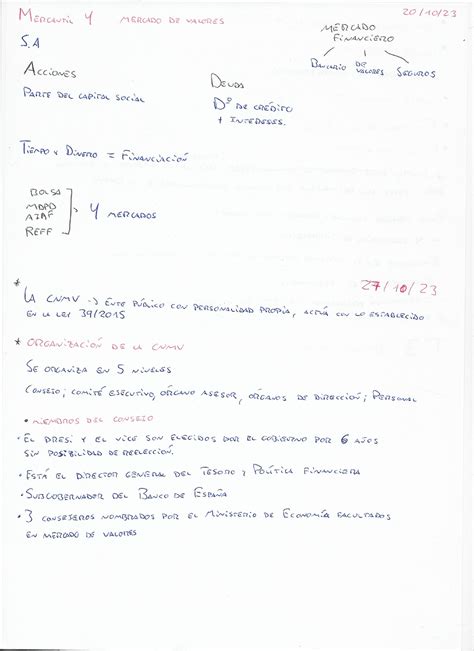 MERCANTIL 4 MERCADO DE VALORES 20/10/23
S.A
MERCADO FINANCIERO
BANCARIO DE VALORES SEGUROS
ACCIONES
PARTE DEL CAPITAL SOCIAL
DEUDA
Dº DE CRÉDITO
+ INTERESES.
TIEMPO Y DINERO = FINANCIACIÓN
BOLSA
MDPD
AIAF
REFF
4 MERCADOS
27/10/23
* LA CNMV -> ENTE PÚBLICO CON PERSONALIDAD PROPIA, ACTÚA CON LO ESTABLECIDO
EN LA LEI 39/2015
* ORGANIZACIÓN DE LA CNMV
SE ORGANIZA EN 5 NIVELES
CONSEJO; COMITÉ EJECUTIVO, ÓRGANO ASESOR, ÓRGANOS DE DIRECCIÓN; PERSONAL
• MIEMBROS DEL CONSEJO
• EL PRESI Y EL VICE SON ELEGIDOS POR EL GOBIERNO POR 6 AÑOS
SIN POSIBILIDAD DE REELECCIÓN.
• ESTÁ EL DIRECTOR GENERAL DEL TESORO Y POLÍTICA FINANCIERA
• SUBGOBERNADOR DEL BANCO DE ESPAÑA
• 3 CONSEJEROS NOMBRADOS POR EL MINISTERIO DE ECONOMÍA FACULTADOS
EN MERCADO DE VALORES